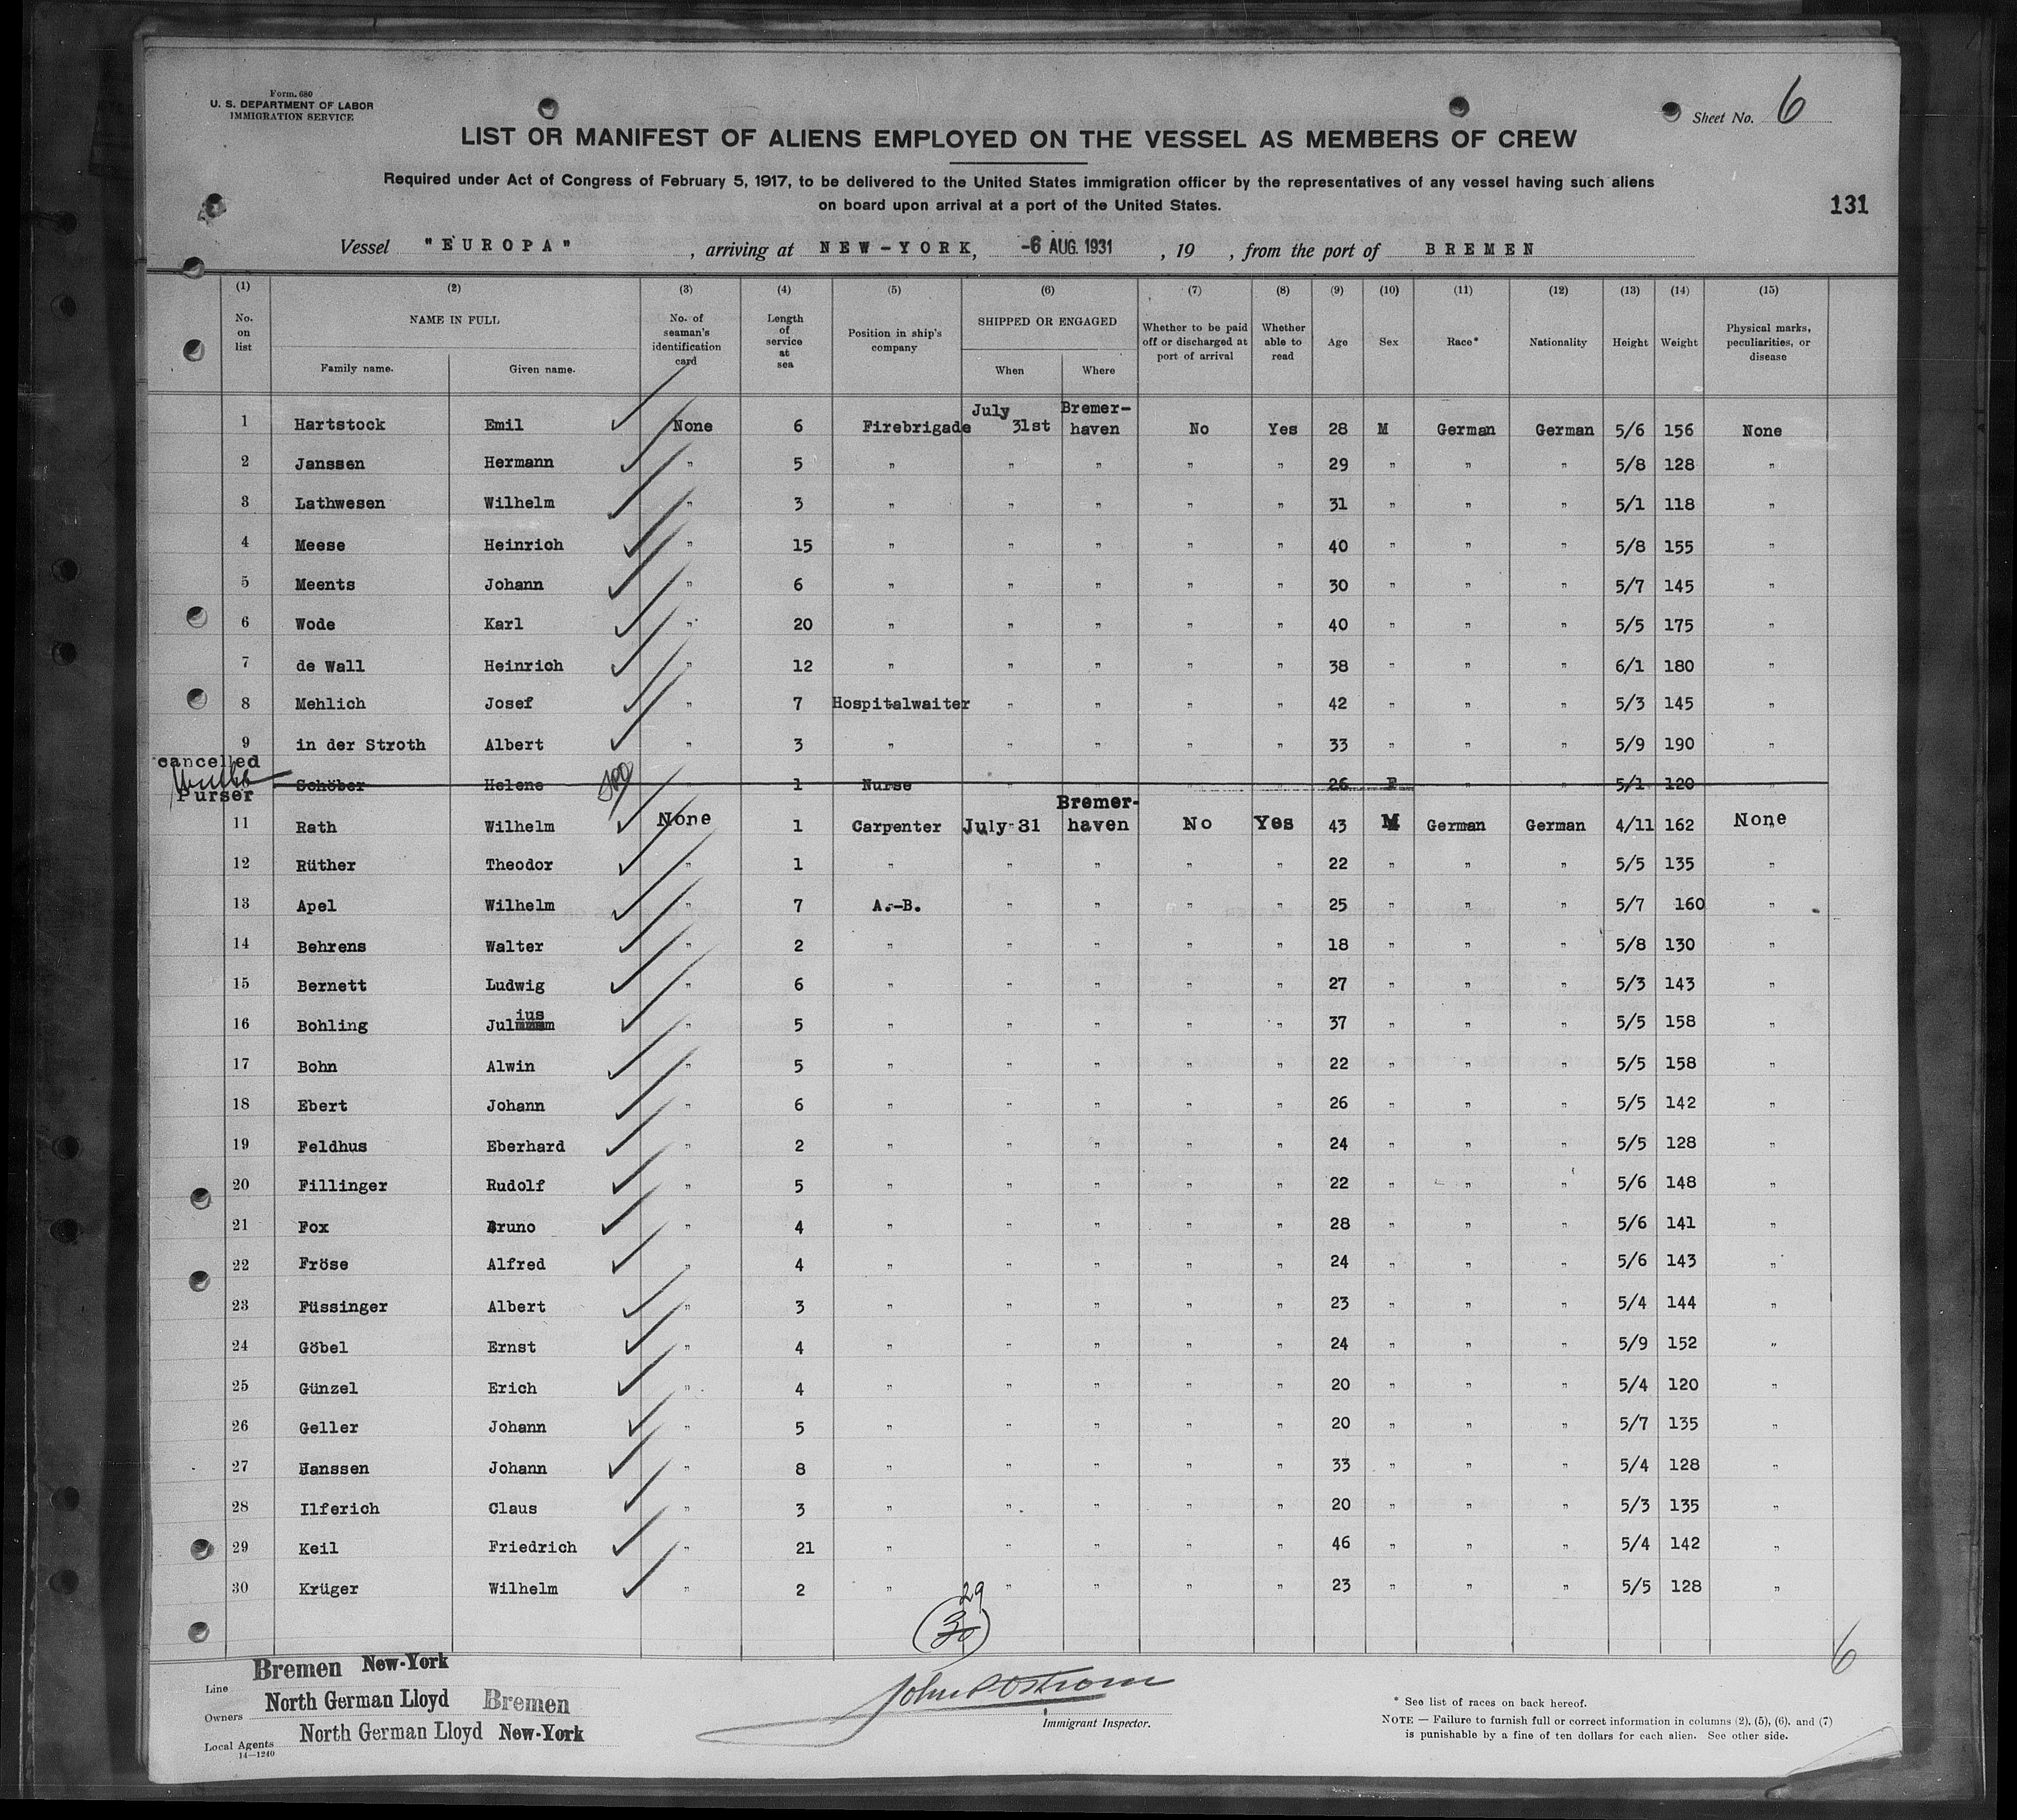 Form. 680
U. S. DEPARTMENT OF LABOR
IMMIGRATION SERVICE
Sheet No. 6
LIST OR MANIFEST OF ALIENS EMPLOYED ON THE VESSEL AS MEMBERS OF CREW
Required under Act of Congress of February 5, 1917, to be delivered to the United States immigration officer by the representatives of any vessel having such aliens
on board upon arrival at a port of the United States.
131
Vessel "EUROPA", arriving at NEW-YORK, -6 AUG. 1931, 19 , from the port of BREMEN
(1) (2) (3) (4) (5) (6) (7) (8) (9) (10) (11) (12) (13) (14) (15)
No. on list NAME IN FULL Family name. Given name. No. of seaman's identification card Length of service at sea Position in ship's company SHIPPED OR ENGAGED When Where Whether to be paid off or discharged at port of arrival Whether able to read Age Sex Race* Nationality Height Weight Physical marks, peculiarities, or disease
1 Hartstock Emil None 6 Firebrigade July 31st Bremer-haven No Yes 28 M German German 5/6 156 None
2 Janssen Hermann " 5 " " " " " 29 " " " 5/8 128 "
3 Lathwesen Wilhelm " 3 " " " " " 31 " " " 5/1 118 "
4 Meese Heinrich " 15 " " " " " 40 " " " 5/8 155 "
5 Meents Johann " 6 " " " " " 30 " " " 5/7 145 "
6 Wode Karl " 20 " " " " " 40 " " " 5/5 175 "
7 de Wall Heinrich " 12 " " " " " 38 " " " 6/1 180 "
8 Mehlich Josef " 7 Hospitalwaiter " " " " 42 " " " 5/3 145 "
9 in der Stroth Albert " 3 " " " " " 33 " " " 5/9 190 "
cancelled
Schöber Helene " 1 Nurse " " " " 26 F " " 5/1 120 "
Purser
11 Rath Wilhelm None 1 Carpenter July 31 Bremer-haven No Yes 43 M German German 4/11 162 None
12 Rüther Theodor " 1 " " " " " 22 " " " 5/5 135 "
13 Apel Wilhelm " 7 A.-B. " " " " 25 " " " 5/7 160 "
14 Behrens Walter " 2 " " " " " 18 " " " 5/8 130 "
15 Bernett Ludwig " 6 " " " " " 27 " " " 5/3 143 "
16 Bohling Julius " 5 " " " " " 37 " " " 5/5 158 "
17 Bohn Alwin " 5 " " " " " 22 " " " 5/5 158 "
18 Ebert Johann " 6 " " " " " 26 " " " 5/5 142 "
19 Feldhus Eberhard " 2 " " " " " 24 " " " 5/5 128 "
20 Fillinger Rudolf " 5 " " " " " 22 " " " 5/6 148 "
21 Fox Bruno " 4 " " " " " 28 " " " 5/6 141 "
22 Fröse Alfred " 4 " " " " " 24 " " " 5/6 143 "
23 Füssinger Albert " 3 " " " " " 23 " " " 5/4 144 "
24 Göbel Ernst " 4 " " " " " 24 " " " 5/9 152 "
25 Günzel Erich " 4 " " " " " 20 " " " 5/4 120 "
26 Geller Johann " 5 " " " " " 20 " " " 5/7 135 "
27 Hanssen Johann " 8 " " " " " 33 " " " 5/4 128 "
28 Ilferich Claus " 3 " " " " " 20 " " " 5/3 135 "
29 Keil Friedrich " 21 " " " " " 46 " " " 5/4 142 "
30 Krüger Wilhelm " 2 " " " " " 23 " " " 5/5 128 "
29
30
6
Line Bremen New-York
Owners North German Lloyd Bremen
Local Agents North German Lloyd New-York
14—1240
John Ostrom
Immigrant Inspector.
* See list of races on back hereof.
NOTE — Failure to furnish full or correct information in columns (2), (5), (6), and (7)
is punishable by a fine of ten dollars for each alien. See other side.